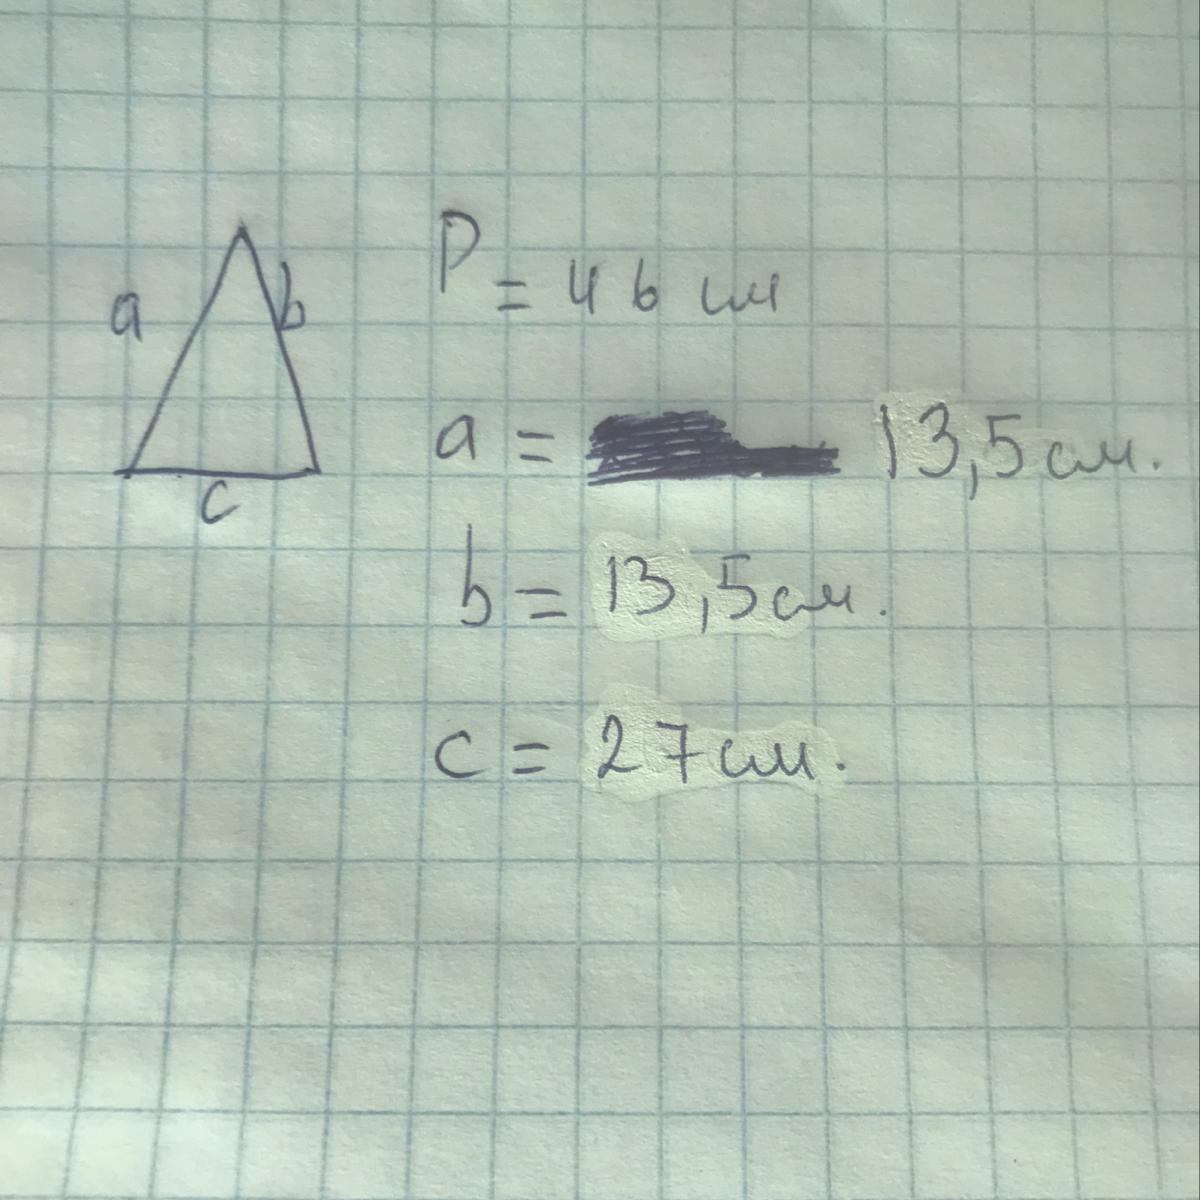 a
b
c
P = 46 см
a = 13,5 см.
b = 13,5 см.
c = 27 см.